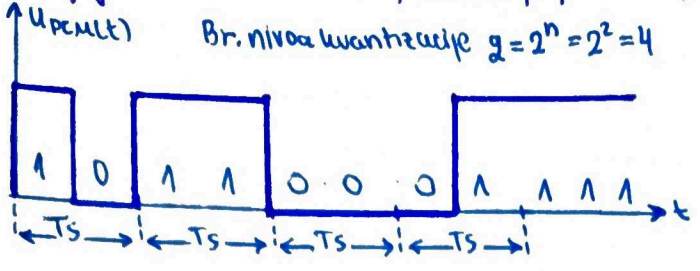 UPCM(t) Br. nivoa kvantizacije q=2ⁿ=2²=4
1 0 1 1 0 0 0 1 1 1 1
t
Ts Ts Ts Ts